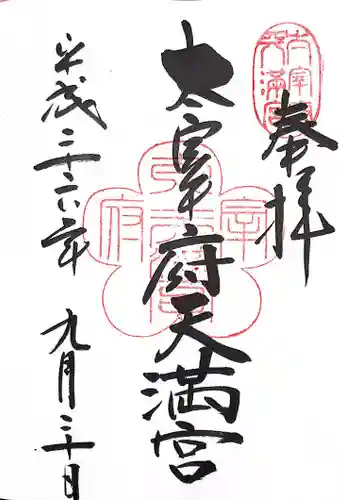 奉拝
太宰府天満宮
平成二十六年 九月二十日